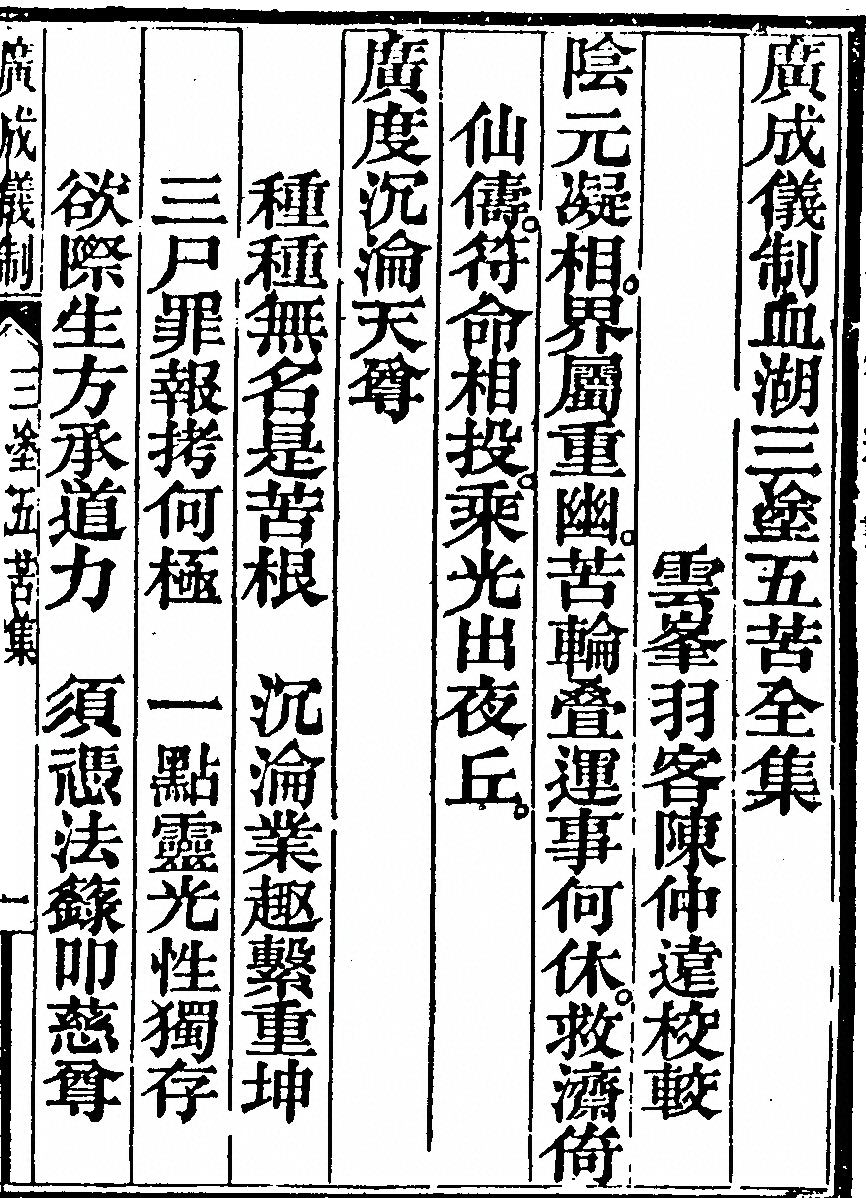 廣成儀制血湖三塗五苦全集
雲峯羽客陳仲遠校較
陰元凝相。界屬重幽。苦輪叠運事何休。救濟倚
仙儔。符命相投。乘光出夜丘。
廣度沉淪天尊
種種無名是苦根　沉淪業趣繫重坤
三尸罪報拷何極　一點靈光性獨存
欲際生方承道力　須憑法籙叩慈尊
廣成儀制　三塗五苦集　一